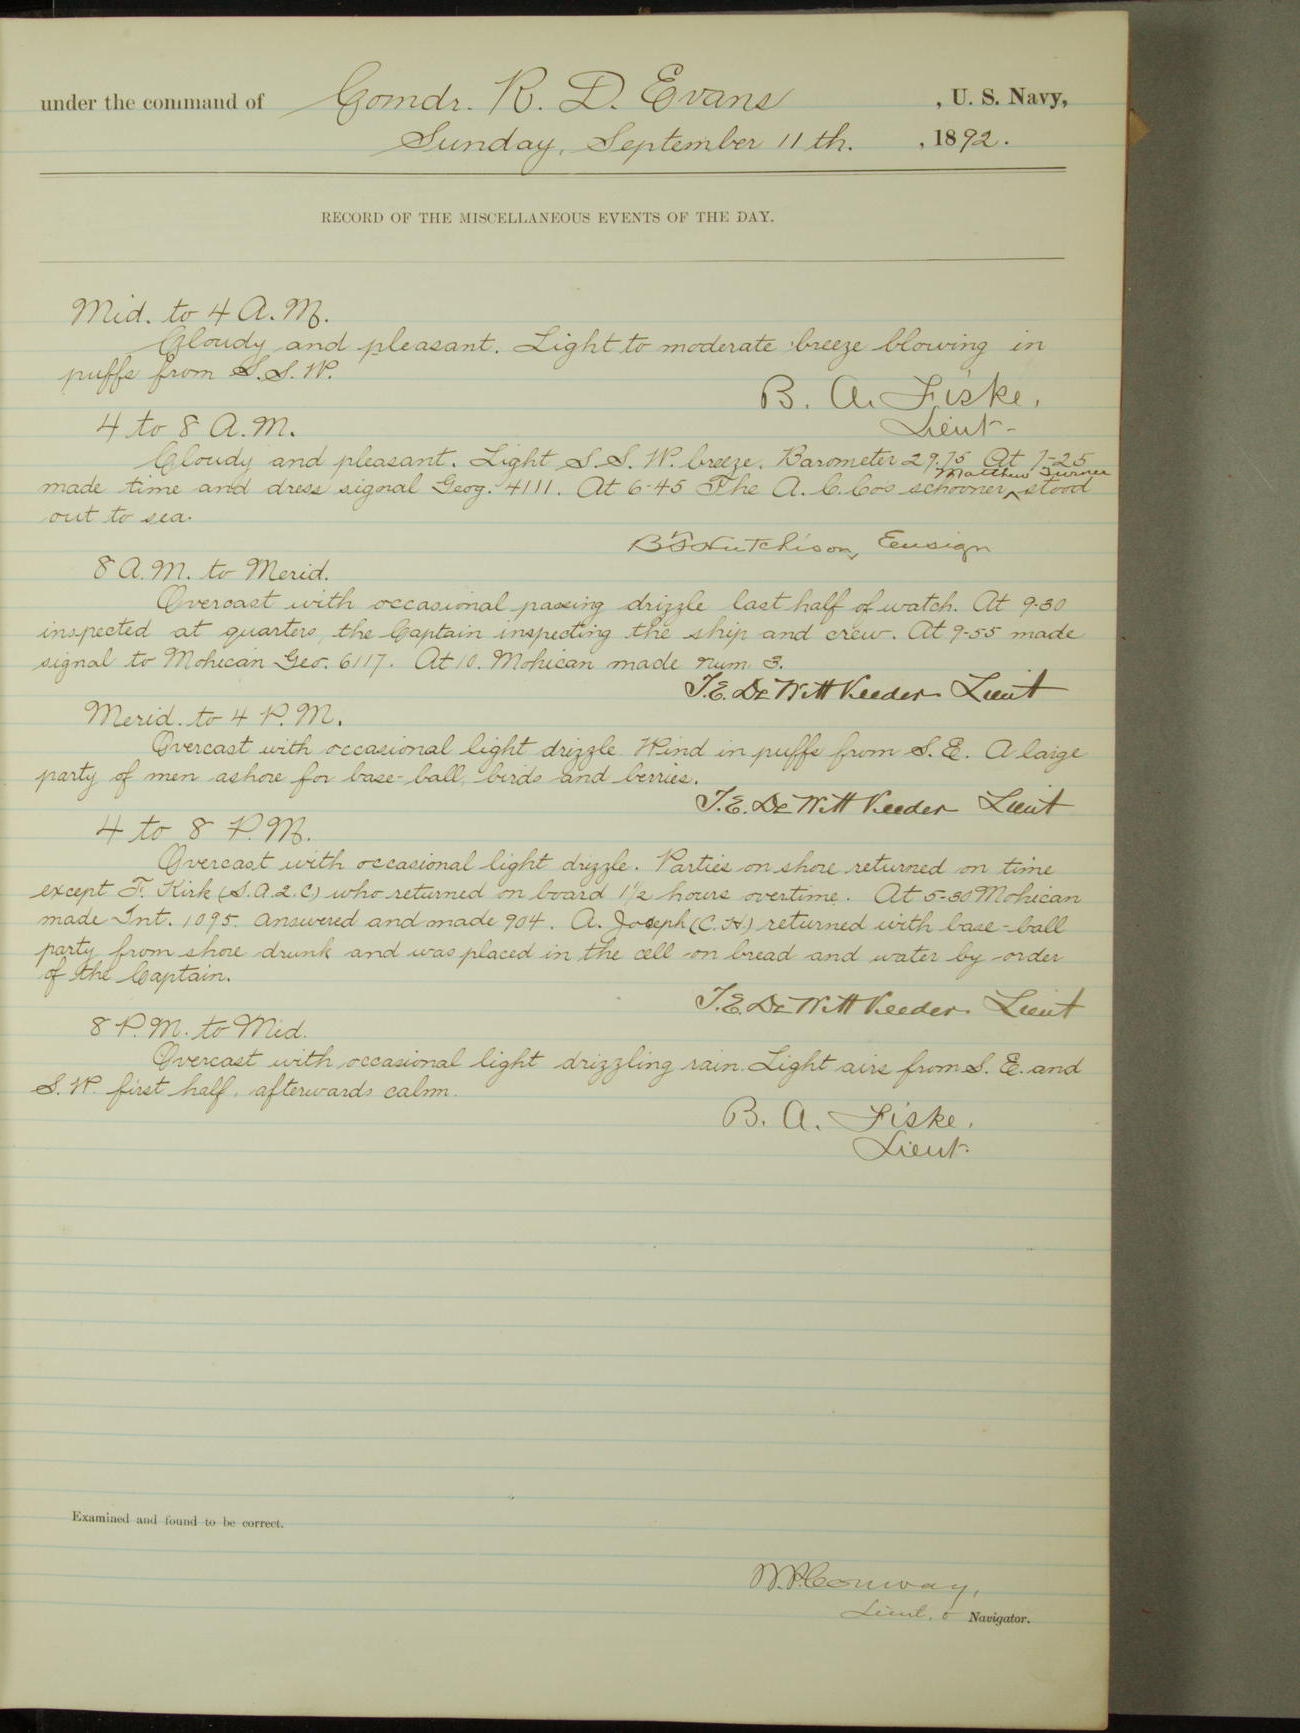 under the command of Comdr. R. D. Evans , U. S. Navy,
Sunday, September 11th. , 1892.
RECORD OF THE MISCELLANEOUS EVENTS OF THE DAY.
Mid. to 4 A.M.
Cloudy and pleasant. Light to moderate breeze blowing in
puffs from S.S.W.
B. A. Fiske,
Lieut-
4 to 8 A.M.
Cloudy and pleasant. Light S.S.W. breeze. Barometer 29.75 At 7-25
made time and dress signal Geog. 4111. At 6-45 The A.C.Co's schooner ^ Matthew Turner stood
out to sea.
Hutchison, Ensign
8 A.M. to Merid.
Overcast with occasional passing drizzle last half of watch. At 9-30
inspected at quarters, the Captain inspecting the ship and crew. At 9-55 made
signal to Mohican Geo. 6117. At 10. Mohican made num. 3.
T.E. DeWitt Veeder Lieut
Merid. to 4 P.M.
Overcast with occasional light drizzle Wind in puffs from S.E. A large
party of men ashore for base-ball, birds and berries.
T.E. DeWitt Veeder Lieut
4 to 8 P.M.
Overcast with occasional light drizzle. Parties on shore returned on time
except F. Kirk (S.A.2.C) who returned on board 1½ hours overtime. At 5-30 Mohican
made Int. 1095. answered and made 904. A. Joseph (C.H) returned with base-ball
party from shore drunk and was placed in the cell on bread and water by order
of the Captain.
T.E. DeWitt Veeder. Lieut
8 P.M. to Mid.
Overcast with occasional light drizzling rain. Light airs from S.E. and
S.W. first half, afterwards calm.
B. A. Fiske,
Lieut.
Examined and found to be correct.
W.P. Conway,
Lieut. & Navigator.